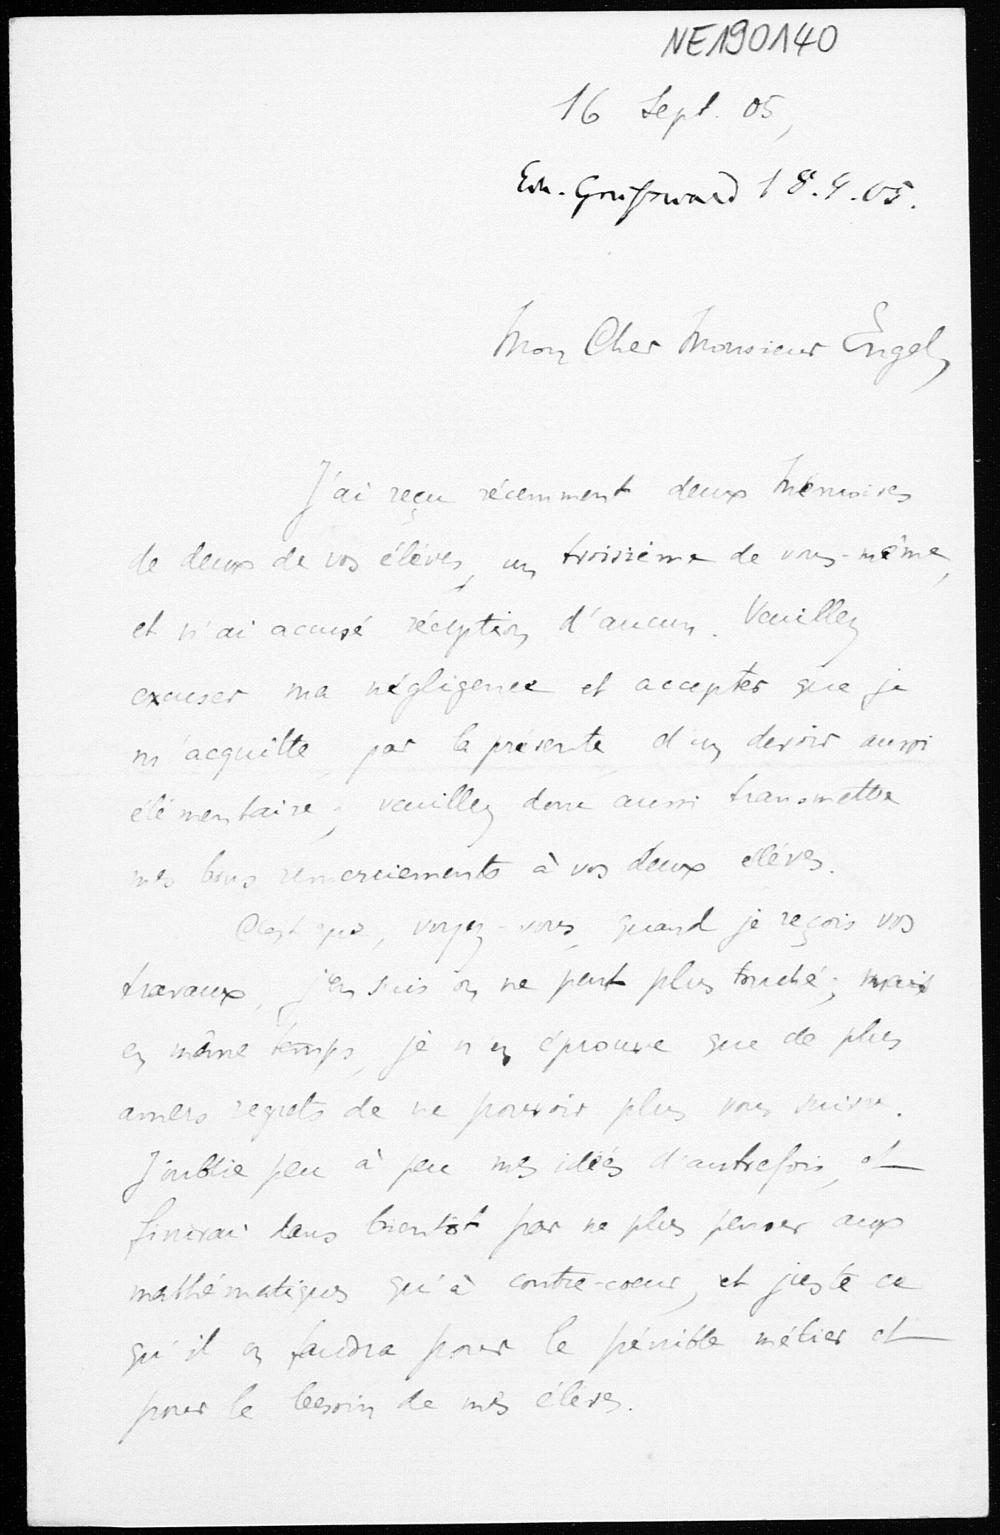 NE190140
16 Sept. 05,
Erh. Greifswald 18.9.05.
Mon Cher Monsieur Engel,
J'ai reçu récemment deux Mémoires
de deux de vos élèves, un troisième de vous-même,
et n'ai accusé réception d'aucun. Veuillez
excuser ma négligence et accepter que je
m'acquitte, par la présente d'un devoir aussi
élémentaire; veuillez donc aussi transmettre
mes bons remerciements à vos deux élèves.
C'est que, voyez-vous, quand je reçois vos
travaux, j'en suis on ne peut plus touché; mais
en même temps, je n'en éprouve que de plus
amers regrets de ne pouvoir plus vous suivre.
J'oublie peu à peu mes idées d'autrefois, et
finirai dans bientôt par ne plus penser aux
mathématiques qu'à contre-coeur, et juste ce
qu'il en faudra pour le pénible métier et
pour le besoin de mes élèves.